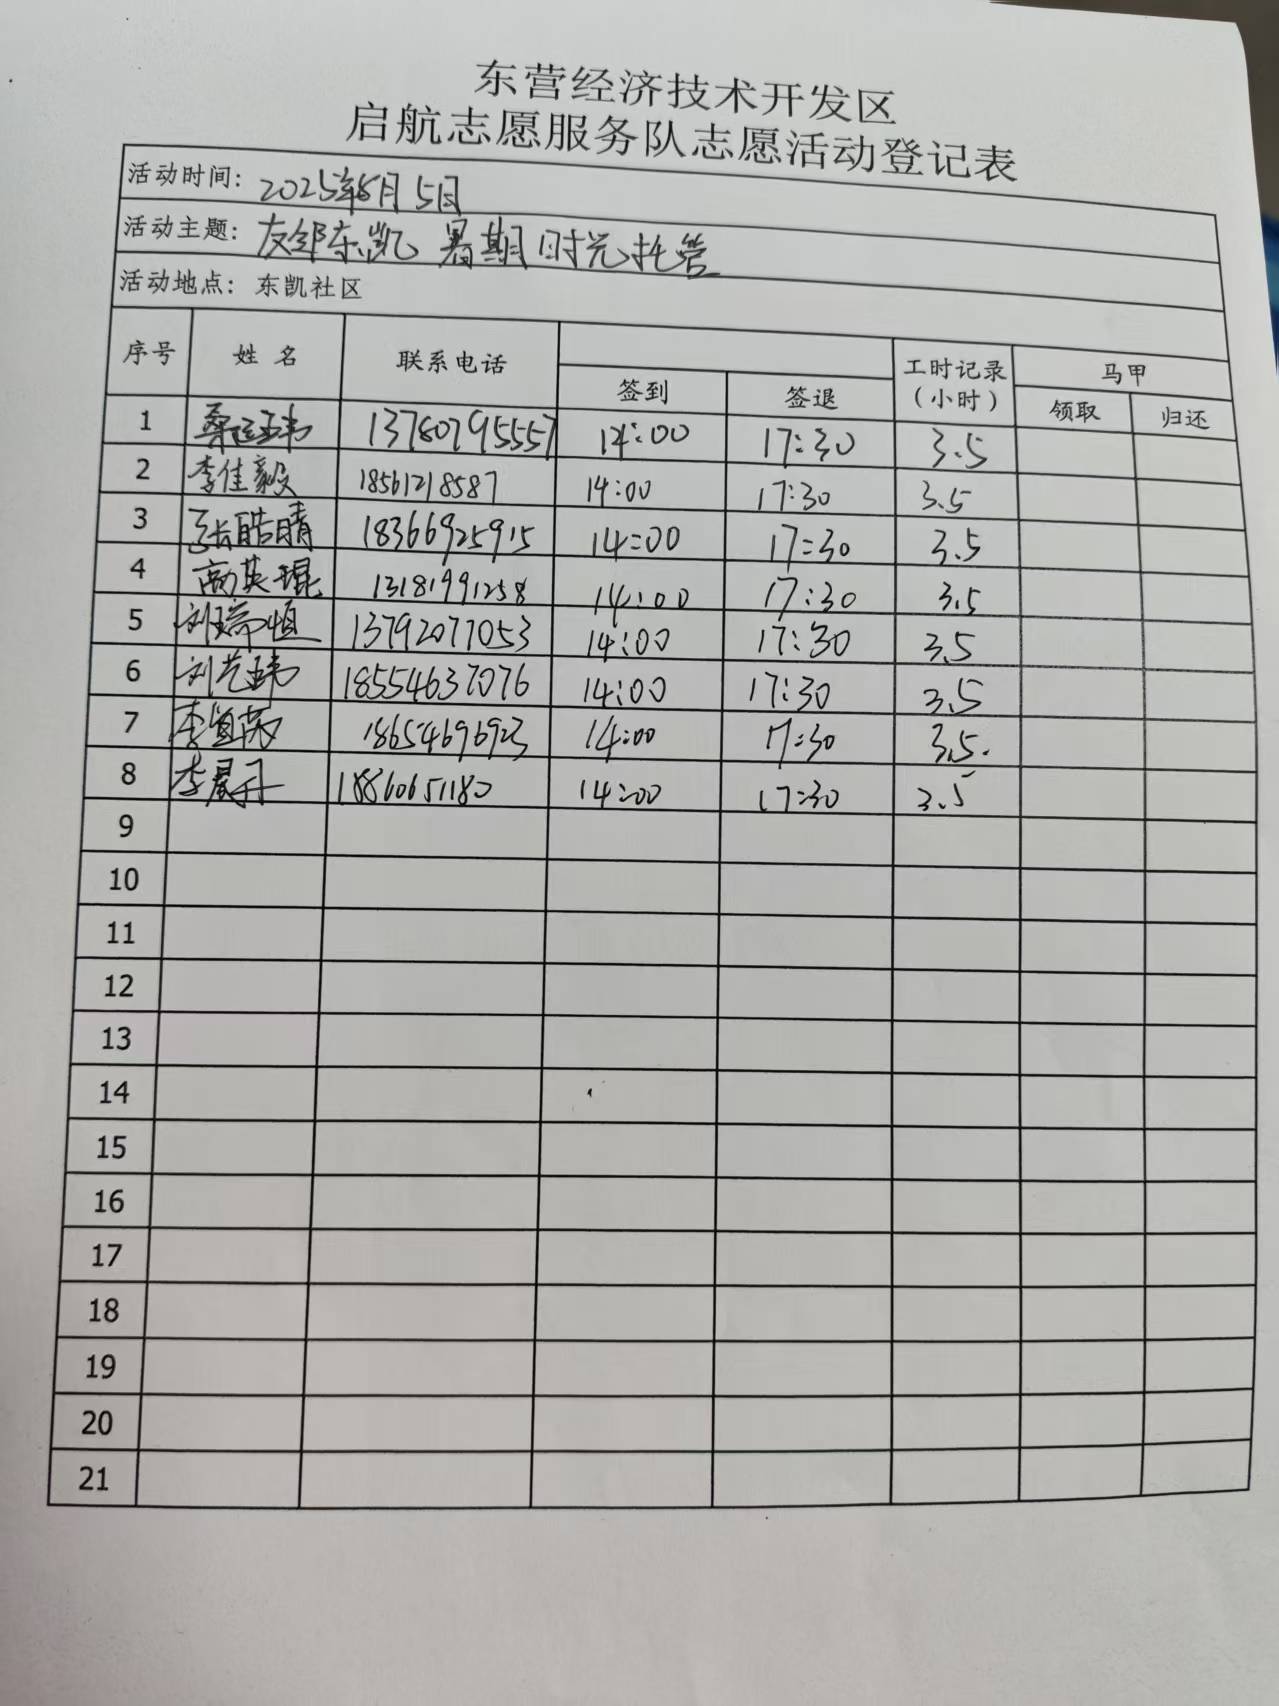 东营经济技术开发区
启航志愿服务队志愿活动登记表
活动时间：2025年8月5日
活动主题：友邻东凯 暑期时光托管
活动地点：东凯社区
序号 姓名 联系电话 签到 签退 工时记录（小时） 马甲 领取 归还
1 桑 13780795557 14:00 17:30 3.5
2 李佳毅 18561218587 14:00 17:30 3.5
3 张皓晴 18366925915 14:00 17:30 3.5
4 高英琨 13181991258 14:00 17:30 3.5
5 刘瑞恒 13792077053 14:00 17:30 3.5
6 刘艺玮 18554637076 14:00 17:30 3.5
7 李 18654696923 14:00 17:30 3.5
8 李晨丹 18860651180 14:00 17:30 3.5
9
10
11
12
13
14
15
16
17
18
19
20
21